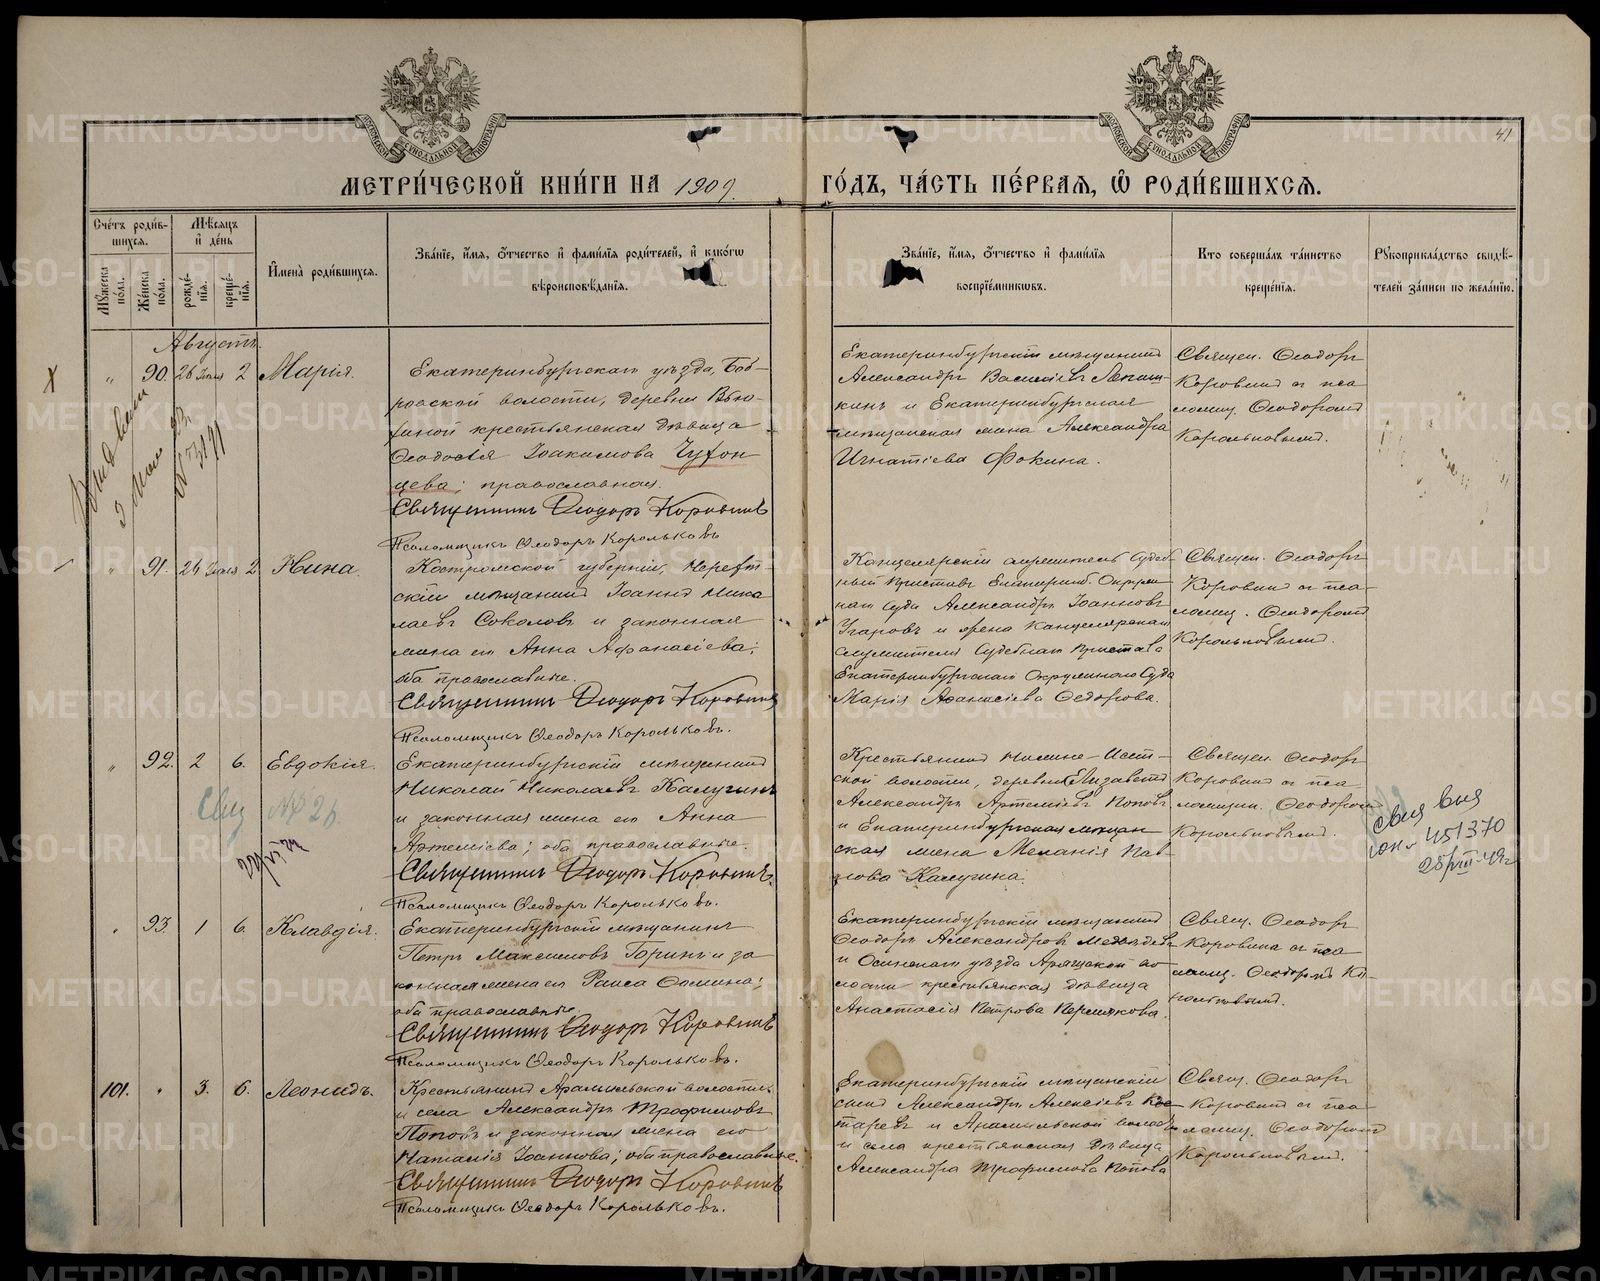 41
МЕТРИ́ЧЕСКОЙ КНИ́ГИ НА 1909 ГО́ДЪ, ЧА́СТЬ ПЕ́РВАЯ, Ѡ҆ РОДИ́ВШИХСЯ.
Сче́тъ роди́в-
шихся.
Мѣ́сяцъ
и҆ де́нь
Му́жеска
по́ла.
Же́нска
по́ла.
рожде́-
нїя.
креще́-
нїя.
И҆мена̀ роди́вшихся.
Зва́нїе, и҆́мя, ѻ҆́тчество и҆ фами́лїя роди́телей, и҆ како́гѡ
вѣроисповѣ́данїя.
Зва́нїе, и҆́мя, ѻ҆́тчество и҆ фами́лїя
воспрїе́мникѡвъ.
Кто̀ соверша́лъ та́инство
креще́нїя.
Рꙋкоприкла́дство свидѣ́-
телей за́писи по жела́нїю.
Августъ.
" 90. 26 Іюля 2 Марія
Екатеринбургскаго уѣзда, Боб-
ровской волости, деревни Вью-
хиной крестьянская дѣвица
Ѳеодосія Іоакимова Чуфон
цева; православная.
Священникъ Ѳеодоръ Коровинъ
Псаломщикъ Ѳеодоръ Корольковъ
Екатеринбургскій мѣщанинъ
Александръ Василіевъ Лепаш-
кинъ и Екатеринбургская
мѣщанская жена Александра
Игнатіева Фокина.
Священ. Ѳеодоръ
Коровинъ съ пса
ломщ. Ѳеодоромъ
Корольковымъ.
" 91. 26 Іюля 2 Нина
Костромской губерніи, Нерехт-
скій мѣщанинъ Іоаннъ Нико
лаевъ Соколовъ и законная
жена его Анна Аѳанасіева;
оба православные.
Священникъ Ѳеодоръ Коровинъ
Псаломщикъ Ѳеодоръ Корольковъ.
Канцелярскій служитель Судеб
ный Приставъ Екатеринб. Окружн
наго Суда Александръ Іоанновъ
Угаровъ и жена Канцелярскаго
служителя Судебнаго Пристава
Екатеринбургскаго Окружного Суда
Марія Аѳанасіева Ѳедорова.
Священ. Ѳеодоръ
Коровинъ съ пса-
ломщ. Ѳеодоромъ
Корольковымъ.
" 92. 2 6. Евдокія.
Екатеринбургскій мѣщанинъ
Николай Николаевъ Калугинъ
и законная жена его Анна
Артеміева; оба православные.
Священникъ Ѳеодоръ Коровинъ.
Псаломщикъ Ѳеодоръ Корольковъ.
Крестьянинъ Нижне-Исет-
ской волости, деревни Елизаветъ
Александръ Артеміевъ Поповъ
и Екатеринбургская мѣщан
ская жена Меланія Пав-
лова Калугина.
Священ. Ѳеодоръ
Коровинъ съ пса
ломщи. Ѳеодоромъ
Корольковымъ.
451370
" 93. 1 6. Клавдія.
Екатеринбургскій мѣщанинъ
Петръ Максимовъ Горинъ и за
конная жена его Раиса Ѳомина;
оба православные.
Священникъ Ѳеодоръ Коровинъ
Псаломщикъ Ѳеодоръ Корольковъ.
Екатеринбургскій мѣщанинъ
Ѳеодоръ Александровъ Медвѣдевъ
и Осинскаго уѣзда Аряжской во
лости крестьянская дѣвица
Анастасія Петрова Пермякова.
Свящ. Ѳеодоръ
Коровинъ съ пса
ломщ. Ѳеодоромъ Ко-
рольковымъ.
101. " 3. 6. Леонидъ.
Крестьянинъ Арамильской волости
и села Александръ Трофимовъ
Поповъ и законная жена его
Наталія Іоаннова; оба православные.
Священникъ Ѳеодоръ Коровинъ
Псаломщикъ Ѳеодоръ Корольковъ.
Екатеринбургскій мѣщанскій
сынъ Александръ Алексіевъ Кос
таревъ и Арамильской волос
и села крестьянская дѣвица
Александра Трофимова Попова
Свящ. Ѳеодоръ
Коровинъ съ пса-
ломщ. Ѳеодоромъ
Корольковымъ.